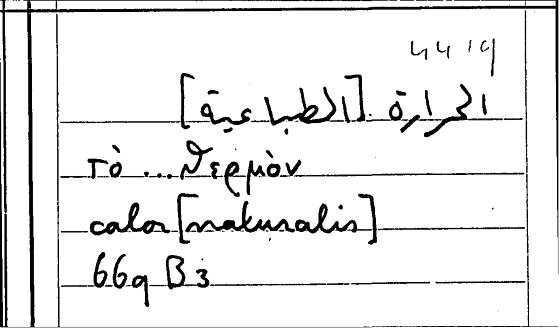 4419
الحرارة [الطباعية]
τὸ ... θερμὸν
calor [naturalis]
669 B 3